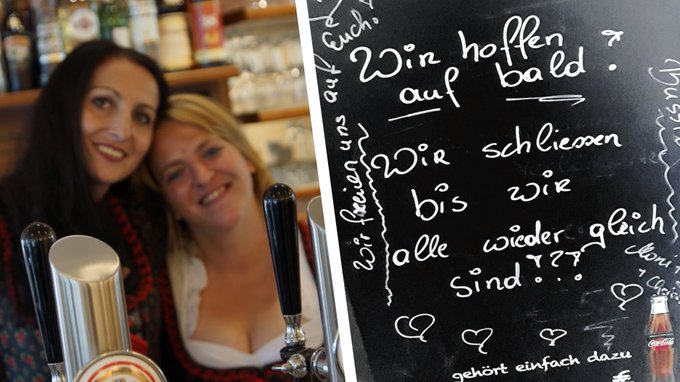 Wir hoffen
auf bald!
Wir schliessen
bis wir
alle wieder gleich
sind!???
Wir freuen uns auf
Euch!
Coca-Cola
gehört einfach dazu